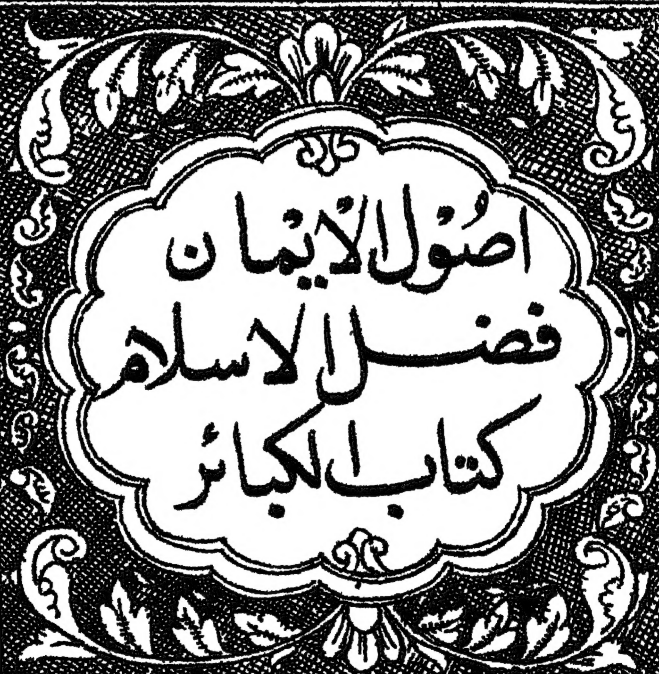 اصُوْل الْاِيْمان
فضل الاسلام
كتاب الكبائر